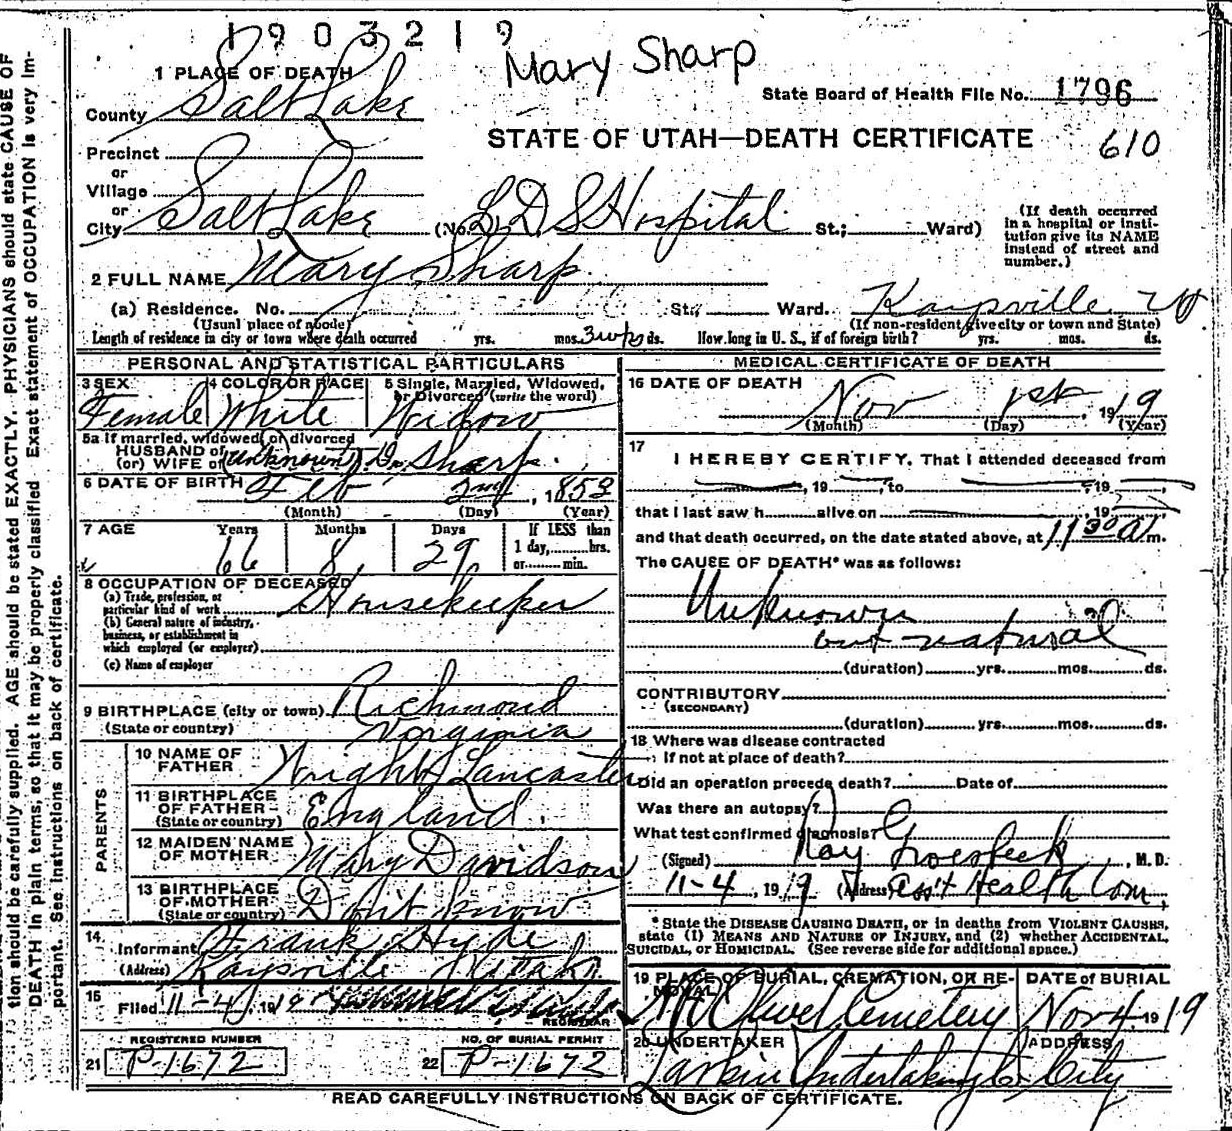 1903219
Mary Sharp
1 PLACE OF DEATH
State Board of Health File No. 1796
County Salt Lake
STATE OF UTAH—DEATH CERTIFICATE
610
Precinct
or
Village
or
City Salt Lake (No. L.D.S Hospital St.; Ward)
(If death occurred in a hospital or institution give its NAME instead of street and number.)
2 FULL NAME Mary Sharp
(a) Residence. No. St., Ward. Kaysville
(Usual place of abode)
(If non-resident give city or town and State)
Length of residence in city or town where death occurred yrs. mos. 3 wks ds. How long in U. S., if of foreign birth? yrs. mos. ds.
PERSONAL AND STATISTICAL PARTICULARS
3 SEX Female
4 COLOR OR RACE White
5 Single, Married, Widowed, or Divorced (write the word) Widow
5a If married, widowed or divorced
HUSBAND of
(or) WIFE of (unknown) Sharp.
6 DATE OF BIRTH Feb 2nd, 1853
(Month) (Day) (Year)
7 AGE Years 66 Months 8 Days 29
If LESS than
1 day, hrs.
or min.
8 OCCUPATION OF DECEASED
(a) Trade, profession, or particular kind of work Housekeeper
(b) General nature of industry, business, or establishment in which employed (or employer)
(c) Name of employer
9 BIRTHPLACE (city or town) Richmond
(State or country) Vorginia
PARENTS
10 NAME OF FATHER Wright Lancaster
11 BIRTHPLACE OF FATHER (State or country) England.
12 MAIDEN NAME OF MOTHER Mary Davidson
13 BIRTHPLACE OF MOTHER (State or country) Don't know
14 Informant Frank Hyde
(Address) Kaysville Utah
15 Filed 11-4, 19
REGISTRAR
REGISTERED NUMBER
21 P-1672
NO. OF BURIAL PERMIT
22 P-1672
MEDICAL CERTIFICATE OF DEATH
16 DATE OF DEATH Nov 1st, 1919
(Month) (Day) (Year)
17
I HEREBY CERTIFY, That I attended deceased from
, 19 , to , 19 ,
that I last saw h alive on , 19
and that death occurred, on the date stated above, at 11 30 a m.
The CAUSE OF DEATH* was as follows:
Unknown
but natural
(duration) yrs. mos. ds.
CONTRIBUTORY
(SECONDARY)
(duration) yrs. mos. ds.
18 Where was disease contracted
if not at place of death?
Did an operation precede death? Date of
Was there an autopsy?
What test confirmed diagnosis?
(Signed) Ray Groesbeck, M.D.
11-4, 1919 (Address) Ass't Health Com,
*State the DISEASE CAUSING DEATH, or in deaths from VIOLENT CAUSES,
state (1) MEANS AND NATURE OF INJURY, and (2) whether ACCIDENTAL,
SUICIDAL, or HOMICIDAL. (See reverse side for additional space.)
19 PLACE OF BURIAL, CREMATION, OR REMOVAL Mt Olivet Cemetery
DATE OF BURIAL Nov 4 1919
20 UNDERTAKER Larkin Undertaking Co.
ADDRESS City
READ CAREFULLY INSTRUCTIONS ON BACK OF CERTIFICATE.
tion should be carefully supplied. AGE should be stated EXACTLY. PHYSICIANS should state CAUSE OF
DEATH in plain terms, so that it may be properly classified. Exact statement of OCCUPATION is very im-
portant. See instructions on back of certificate.